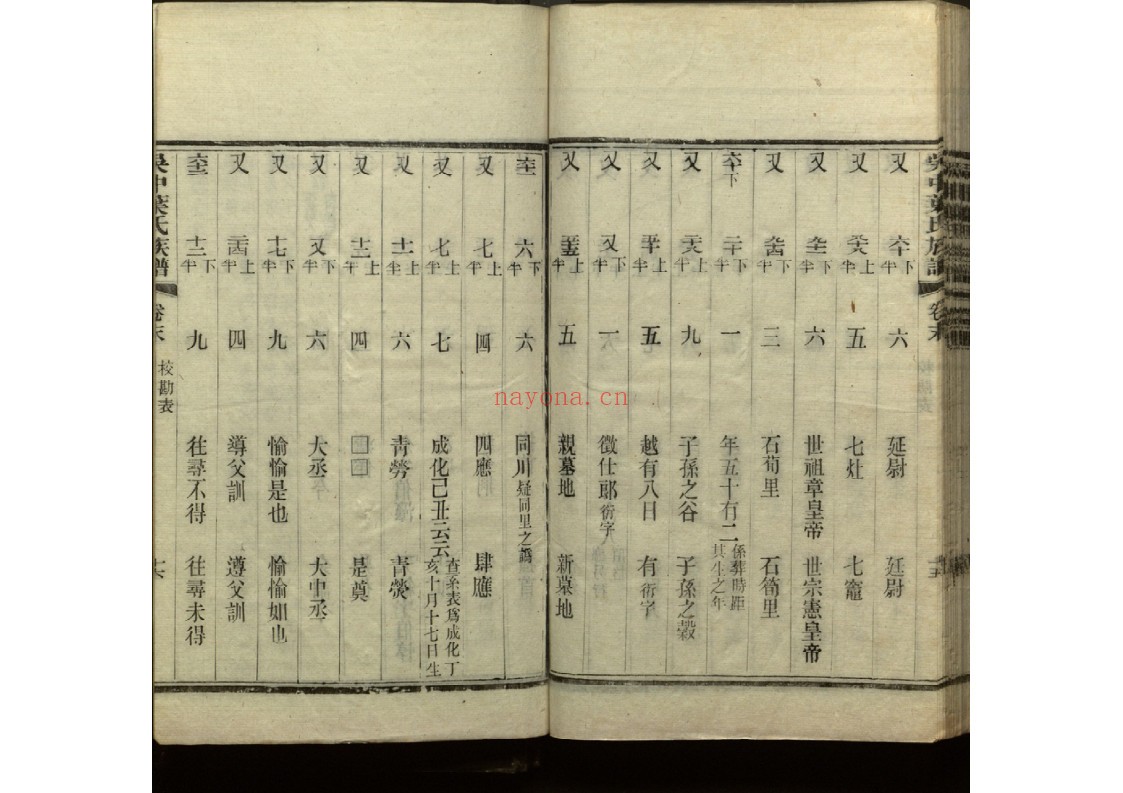 吳中葉氏族譜 卷末
又 六十下半 六 延尉 廷尉
又 上半 五 七灶 七竈
又 下半 六 世祖章皇帝 世宗憲皇帝
又 下半 三 石荀里 石筍里
六十下 二十下半 一 年五十有二 係葬時距其生之年
又 上半 九 子孫之谷 子孫之穀
又 上半 五 越有八日 有衍字
又 又下半 一 徵仕郎衍字
又 上半 五 親墓地 新墓地
六下半 六 同川疑同里之譌
又 七上半 四 四應 肆應
又 七上半 七 成化己丑云云 查系表爲成化丁亥十月十七日生
又 十一上半 六 青勞 青熒
又 十二上半 四 囗囗 是奠
又 又下半 六 大丞 大中丞
又 十七下半 九 愉愉是也 愉愉如也
又 上半 四 導父訓 遵父訓
十三下半 九 往尋不得 往尋未得
吳中葉氏族譜 卷末 校勘表 十六
nayona.cn